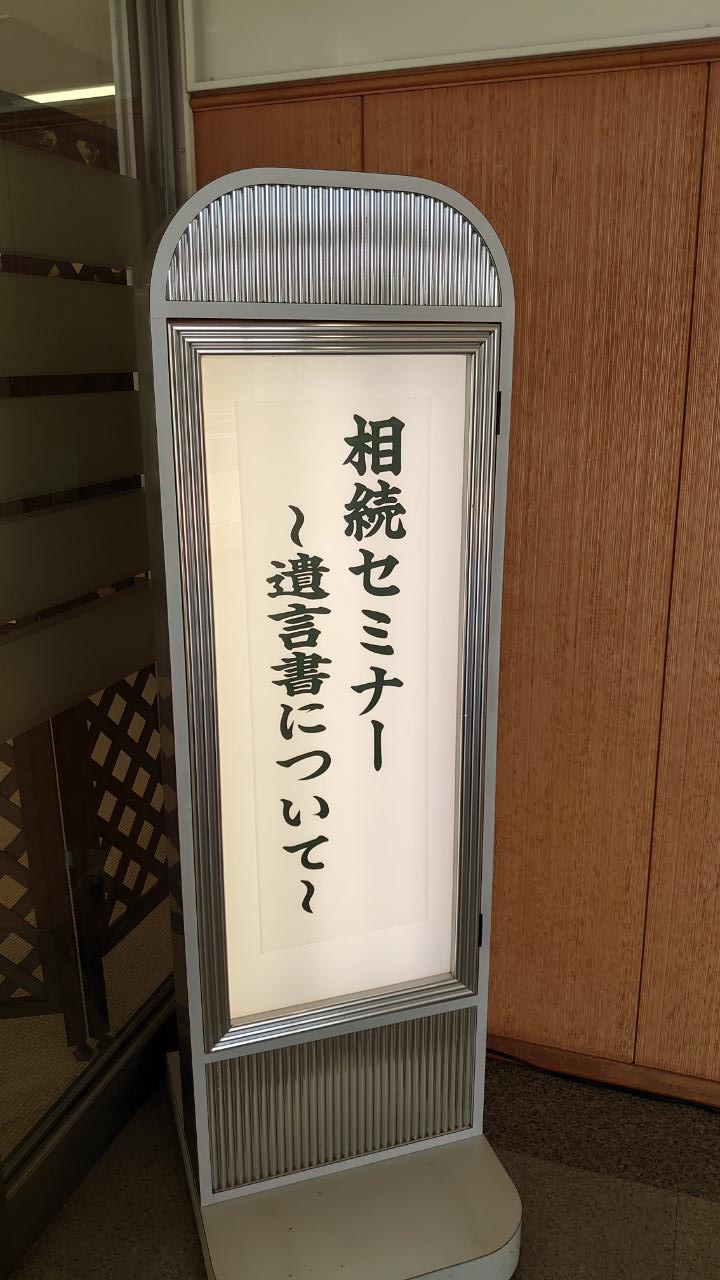 相続セミナー
~遺言書について~